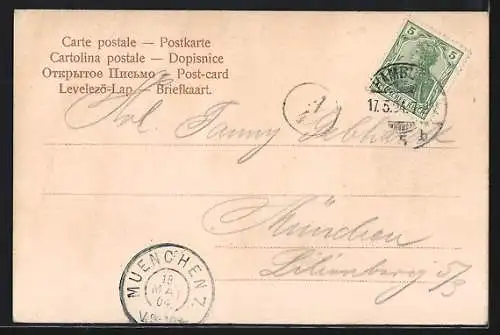 Carte postale — Postkarte
Cartolina postale — Dopisnice
Открытое Письмо — Post-card
Levelező-Lap — Briefkaart.
5 5
17.5.04
Frl. Fanny Gebhardt
München
Lilienberg 5/3
MUENCHEN 7.
18
MAI
04